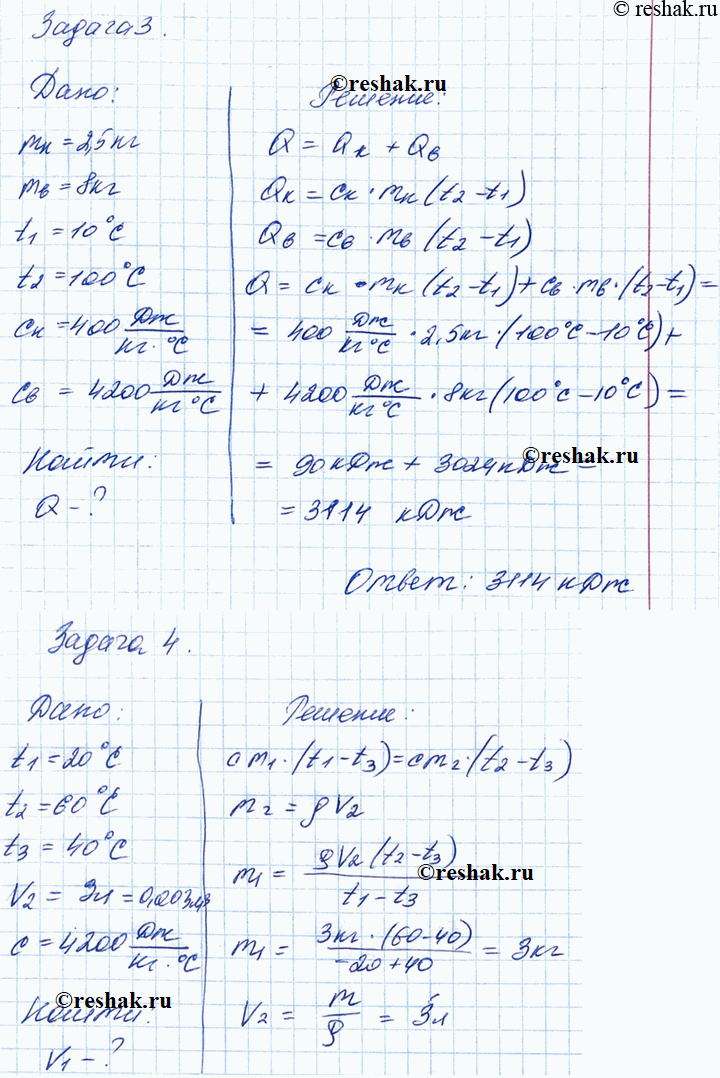 © reshak.ru
Задача 3.
©reshak.ru
Дано:
mк = 2,5 кг
mв = 8 кг
t1 = 10°C
t2 = 100°C
cк = 400 Дж/кг·°C
cв = 4200 Дж/кг°C
Найти:
Q - ?
Решение:
Q = Qк + Qв
Qк = cк · mк (t2 - t1)
Qв = cв · mв (t2 - t1)
Q = cк · mк (t2 - t1) + cв · mв · (t2 - t1) =
= 400 Дж/кг°C · 2,5 кг · (100°C - 10°C) +
+ 4200 Дж/кг°C · 8 кг (100°C - 10°C) =
©reshak.ru
= 90 кДж + 3024 кДж =
= 3114 кДж
Ответ: 3114 кДж
Задача 4.
Дано:
t1 = 20°C
t2 = 60°C
t3 = 40°C
V2 = 3л = 0,003м3
c = 4200 Дж/кг·°C
©reshak.ru
Найти:
V1 - ?
Решение:
cm1 · (t1 - t3) = cm2 · (t2 - t3)
m2 = ρV2
m1 = ρV2 (t2 - t3)/t1 - t3
©reshak.ru
m1 = 3кг · (60 - 40)/-20 + 40 = 3кг
V2 = m/ρ = 3л